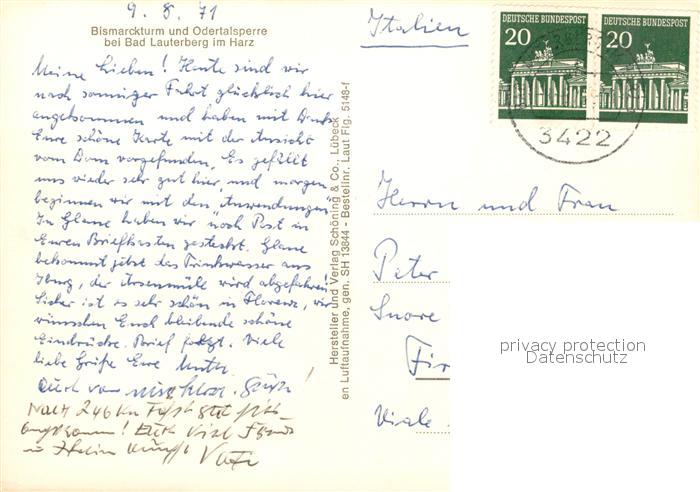 9. 8. 71
Bismarckturm und Odertalsperre
bei Bad Lauterberg im Harz
Meine Lieben! Heute sind wir
nach sonniger Fahrt glücklich hier
angekommen und haben mit Dank
Eure schöne Karte mit der Ansicht
vom Dom vorgefunden. Es gefällt
uns wieder sehr gut hier, und morgen
beginnen wir mit den Anwendungen.
In Glane haben wir noch Post in
Euren Briefkasten gesteckt. Glane
bekommt jetzt das Trinkwasser aus
Iburg, der wird abgefahren!
Sicher ist es sehr schön in Florenz, wir
wünschen Euch bleibende schöne
Eindrücke. Brief folgt. Viele
liebe Grüße Eure
Auch von
Nach 246 km Fahrt gut
angekommen! Euch viel Freude
in Italien
Hersteller und Verlag Schöning & Co., Lübeck
en Luftaufnahme, gen. SH 13644 - Bestellnr. Laut Flg. 5148-f
Italien
DEUTSCHE BUNDESPOST DEUTSCHE BUNDESPOST
20 20
3422
Herrn und Frau
Peter
Snore
Fir
Viale
privacy protection
Datenschutz